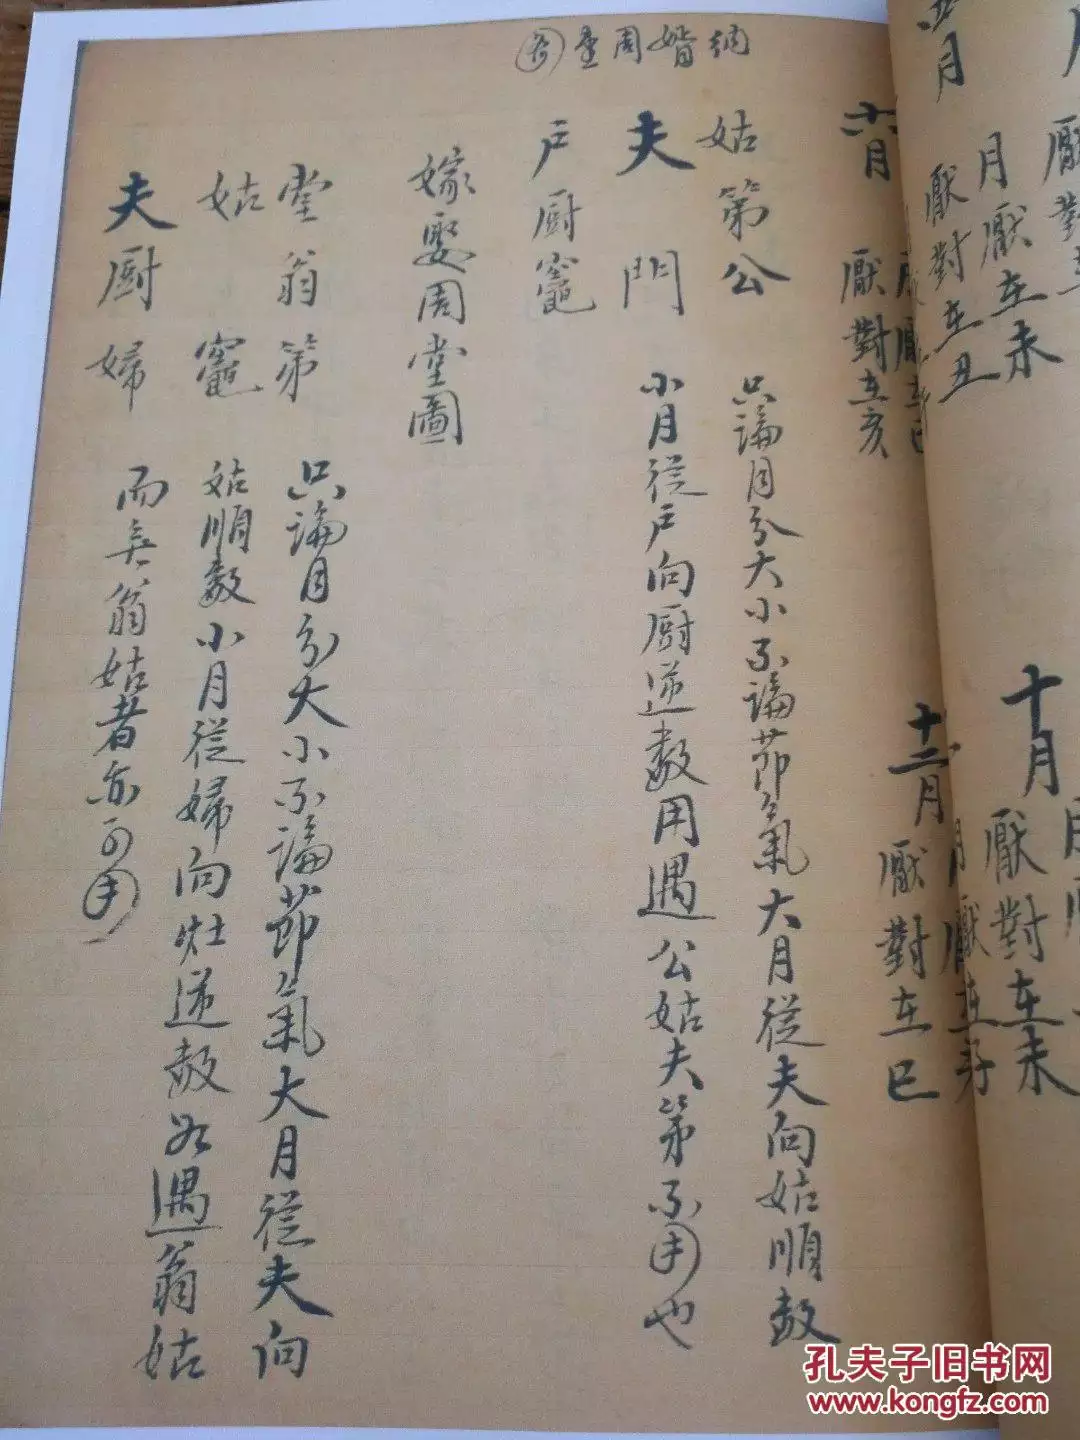 厭對在
五月
月厭在未
厭對在丑
十月
厭對在未
六月
厭對在亥
十二月
厭對在巳
納婚周堂
姑第公
夫門
戶厨竈
只論月分大小不論節氣大月從夫向姑順數
小月從戶向厨逆數用遇公姑夫第不用也
嫁娶周堂圖
堂翁第
姑竈
夫厨婦
只論月分大小不論節氣大月從夫向
姑順數小月從婦向灶逆數如遇翁姑
而無翁姑者亦可用
孔夫子旧书网
www.kongfz.com